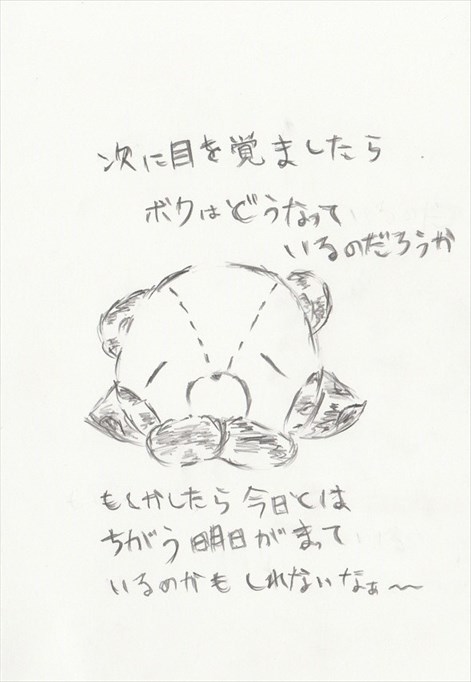 次に目を覚ましたら
ボクはどうなって
いるのだろうか
もしかしたら今日とは
ちがう明日がまって
いるのかもしれないなぁ〜